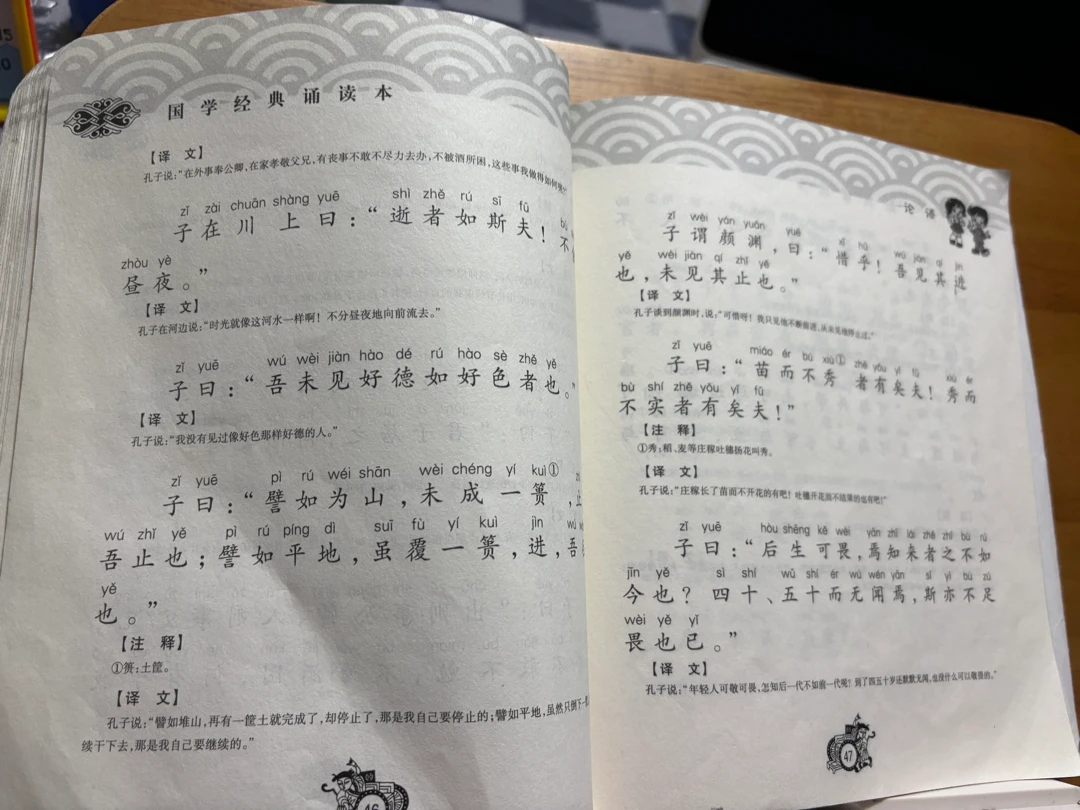 国学经典诵读本
【译 文】
孔子说:“在外事奉公卿,在家孝敬父兄,有丧事不敢不尽力去办,不被酒所困,这些事我做得如何呢?
zǐ zài chuān shàng yuē shì zhě rú sī fū
子在川上曰:“逝者如斯夫!不
zhòu yè
昼夜。”
【译 文】
孔子在河边说:“时光就像这河水一样啊! 不分昼夜地向前流去。”
zǐ yuē wú wèi jiàn hào dé rú hào sè zhě yě
子曰:“吾未见好德如好色者也。
【译 文】
孔子说:“我没有见过像好色那样好德的人。”
zǐ yuē pì rú wéi shān wèi chéng yí kuì①
子曰:“譬如为山,未成一篑,
wú zhǐ yě pì rú píng dì suī fù yí kuì jìn
吾止也;譬如平地,虽覆一篑,进,吾
yě
也。”
【注 释】
①篑:土筐。
【译 文】
孔子说:“譬如堆山,再有一筐土就完成了,却停止了,那是我自己要停止的;譬如平地,虽然只倒下一
续干下去,那是我自己要继续的。”
46
论语
zǐ wèi yán yuān yuē xī hū wú jiàn qí jìn
子谓颜渊,曰:“惜乎!吾见其进
yě wèi jiàn qí zhǐ yě
也,未见其止也。”
【译 文】
孔子谈到颜渊时,说:“可惜呀!我只见他不断前进,从未见他停止过。”
zǐ yuē miáo ér bú xiù① zhě yǒu yǐ fū xiù ér
子曰:“苗而不秀 者有矣夫!秀而
bù shí zhě yǒu yǐ fū
不实者有矣夫!”
【注 释】
①秀:稻、麦等庄稼吐穗扬花叫秀。
【译 文】
孔子说:“庄稼长了苗而不开花的有吧!吐穗开花而不结果的也有吧!”
zǐ yuē hòu shēng kě wèi yān zhī lái zhě zhī bù rú
子曰:“后生可畏,焉知来者之不如
jīn yě sì shí wǔ shí ér wú wén yān sī yì bù zú
今也? 四十、五十而无闻焉,斯亦不足
wèi yě yǐ
畏也已。”
【译 文】
孔子说:“年轻人可敬可畏,怎知后一代不如前一代呢?到了四五十岁还默默无闻,也没什么可以敬畏的。”
47